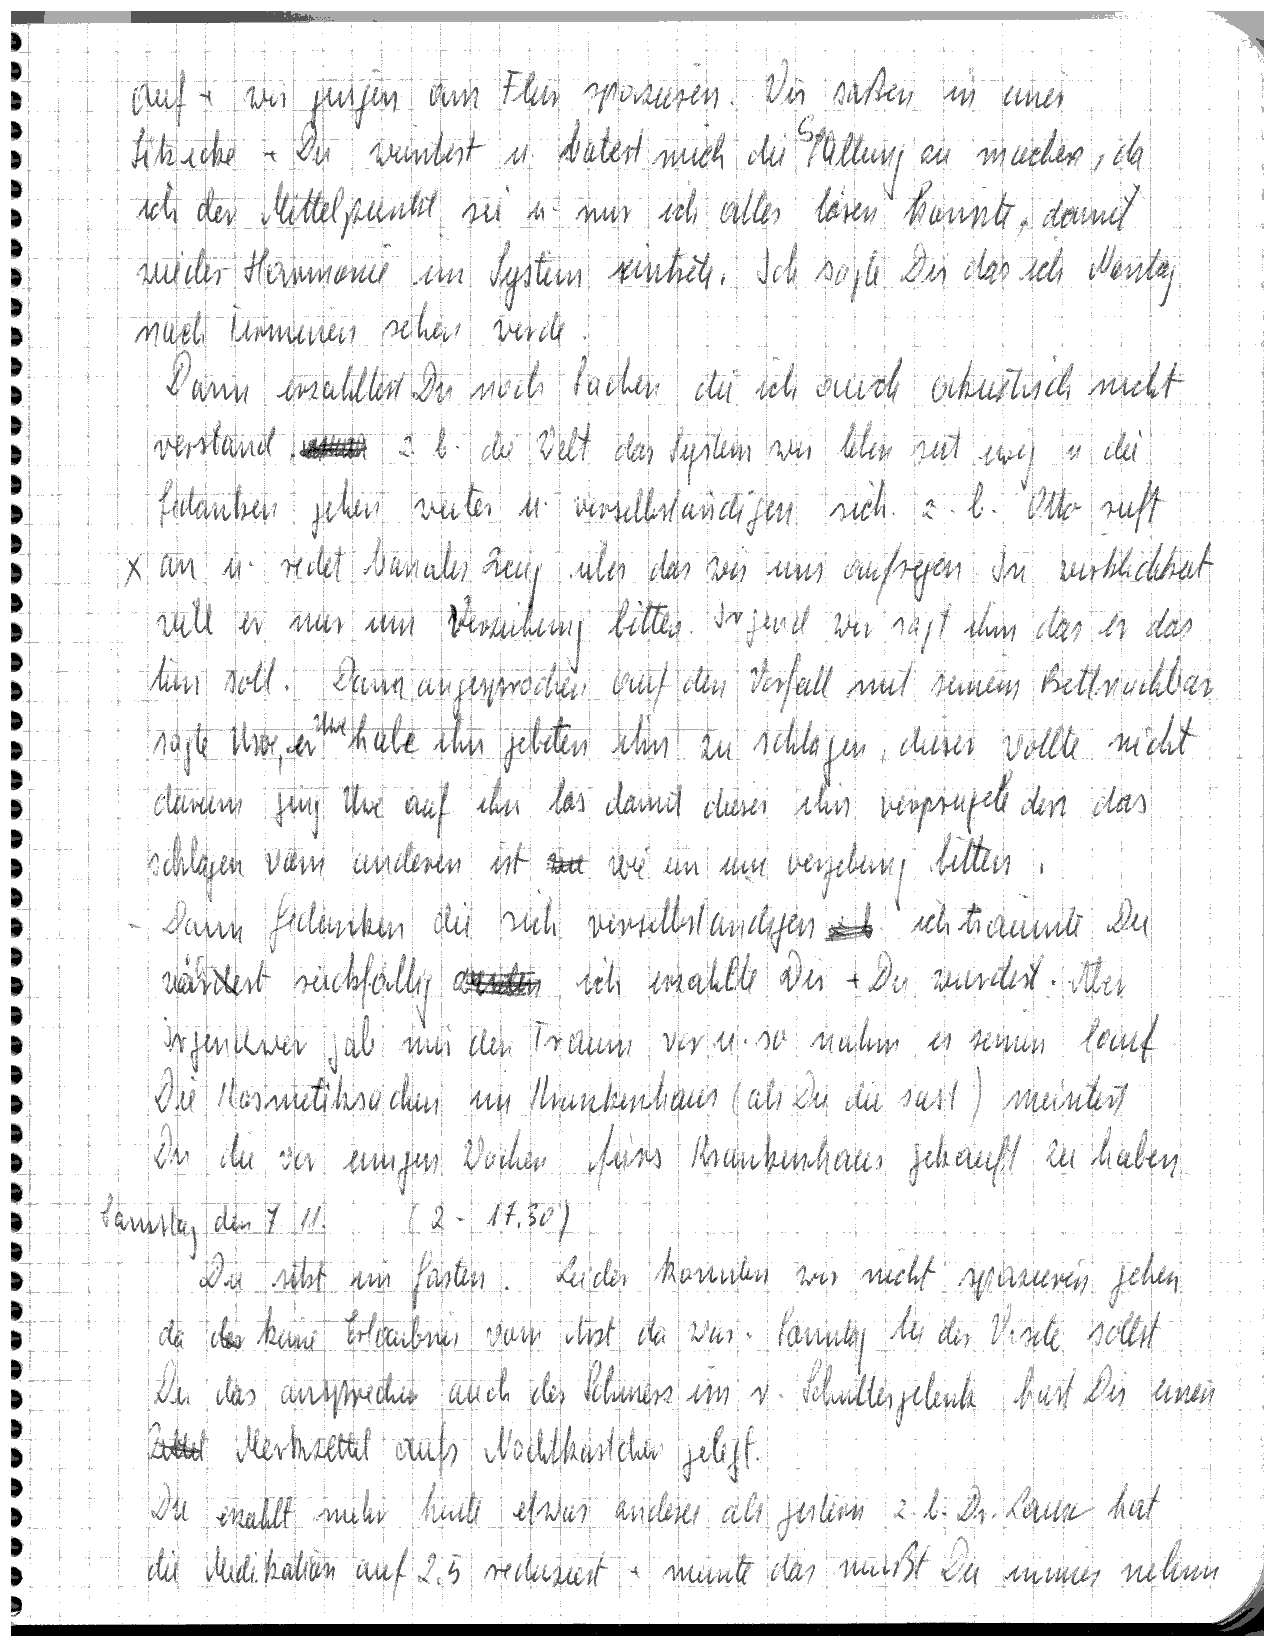 auf + wir gingen am Flur spazieren. Wir saßen in einer
Sitzecke + Du weintest u. batest mich die Stellung zu machen, da
ich der Mittelpunkt sei u. nur ich alles lösen konnte, damit
wieder Harmonie im System eintrete. Ich sagte Dir das ich Montag
nach Terminen sehen werde.
Dann erzähltest Du noch Sachen die ich auch akustisch nicht
verstand z. b. die Welt das System wir leben seit ewig u die
Gedanken gehen weiter u. verselbständigen sich. z. b. Otto ruft
x an u. redet banales Zeug über das wir uns aufregen In wirklichkeit
will er nur um Verzeihung bitten. Irgend wer sagt ihm das er das
tun soll. Dann angesprochen auf den Vorfall mit seinem Bettnachbar
sagte Uwe, er Uwe habe ihn gebeten ihn zu schlagen, dieser wollte nicht
darum ging Uwe auf ihn los damit dieser ihn verprügelt den das
schlagen vom anderen ist wie ein um vergebung bitten.
- Dann Gedanken die sich verselbständigen ich träumte Du
würdest rückfällig ich erzählte Dir + Du wurdest. Aber
irgendwer gab mir den Traum vor u. so nahm es seinen lauf
Die Kosmetiksachen im Krankenhaus (als Du die sast) meintest
Du die vor einigen Wochen fürs Krankenhaus gekauft zu haben
Samstag den 7 11. (2 - 17.30)
Du sitzt im Garten. Leider konnten wir nicht spazieren gehen
da keine Erlaubnis vom Arzt da war. Sonntag bei der Visite sollst
Du das ansprechen auch der Schmerz im r. Schultergelenk hast Dir einen
Zettel Merkzettel aufs Nachtkästchen gelegt.
Du erzählt mehr heute etwas anderes als gestern z. b. Dr. hat
die Medikation auf 2,5 reduziert + meinte das mußt Du immer nehmen